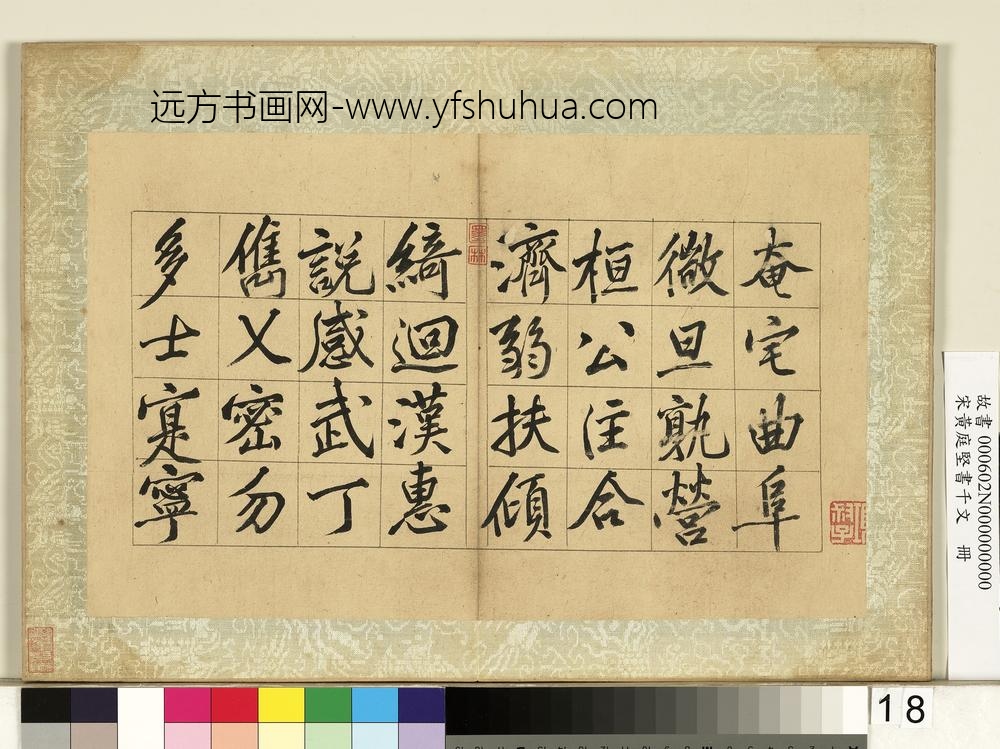 远方书画网-www.yfshuhua.com
奄宅曲阜
微旦孰營
桓公匡合
濟弱扶傾
墨林
綺迴漢惠
說感武丁
儁乂密勿
多士寔寧
故書 000602N000000000
宋黃庭堅書千文 冊
18